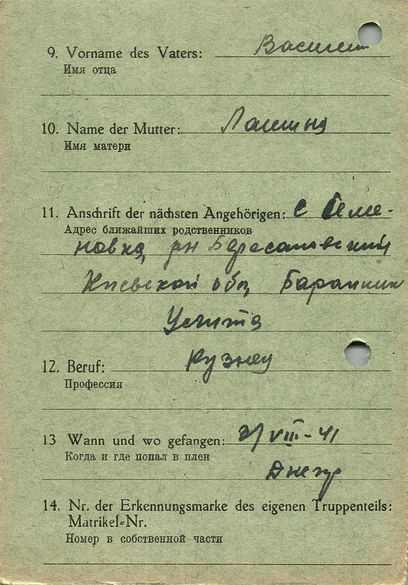 9. Vorname des Vaters: Василий
Имя отца
10. Name der Mutter:
Имя матери
11. Anschrift der nächsten Angehörigen: с Семе-
Адрес ближайших родственников
новка рн
Киевской обл
12. Beruf: Кузнец
Профессия
13 Wann und wo gefangen: VIII-41
Когда и где попал в плен
Днепр
14. Nr. der Erkennungsmarke des eigenen Truppenteils:
Matrikel-Nr.
Номер в собственной части